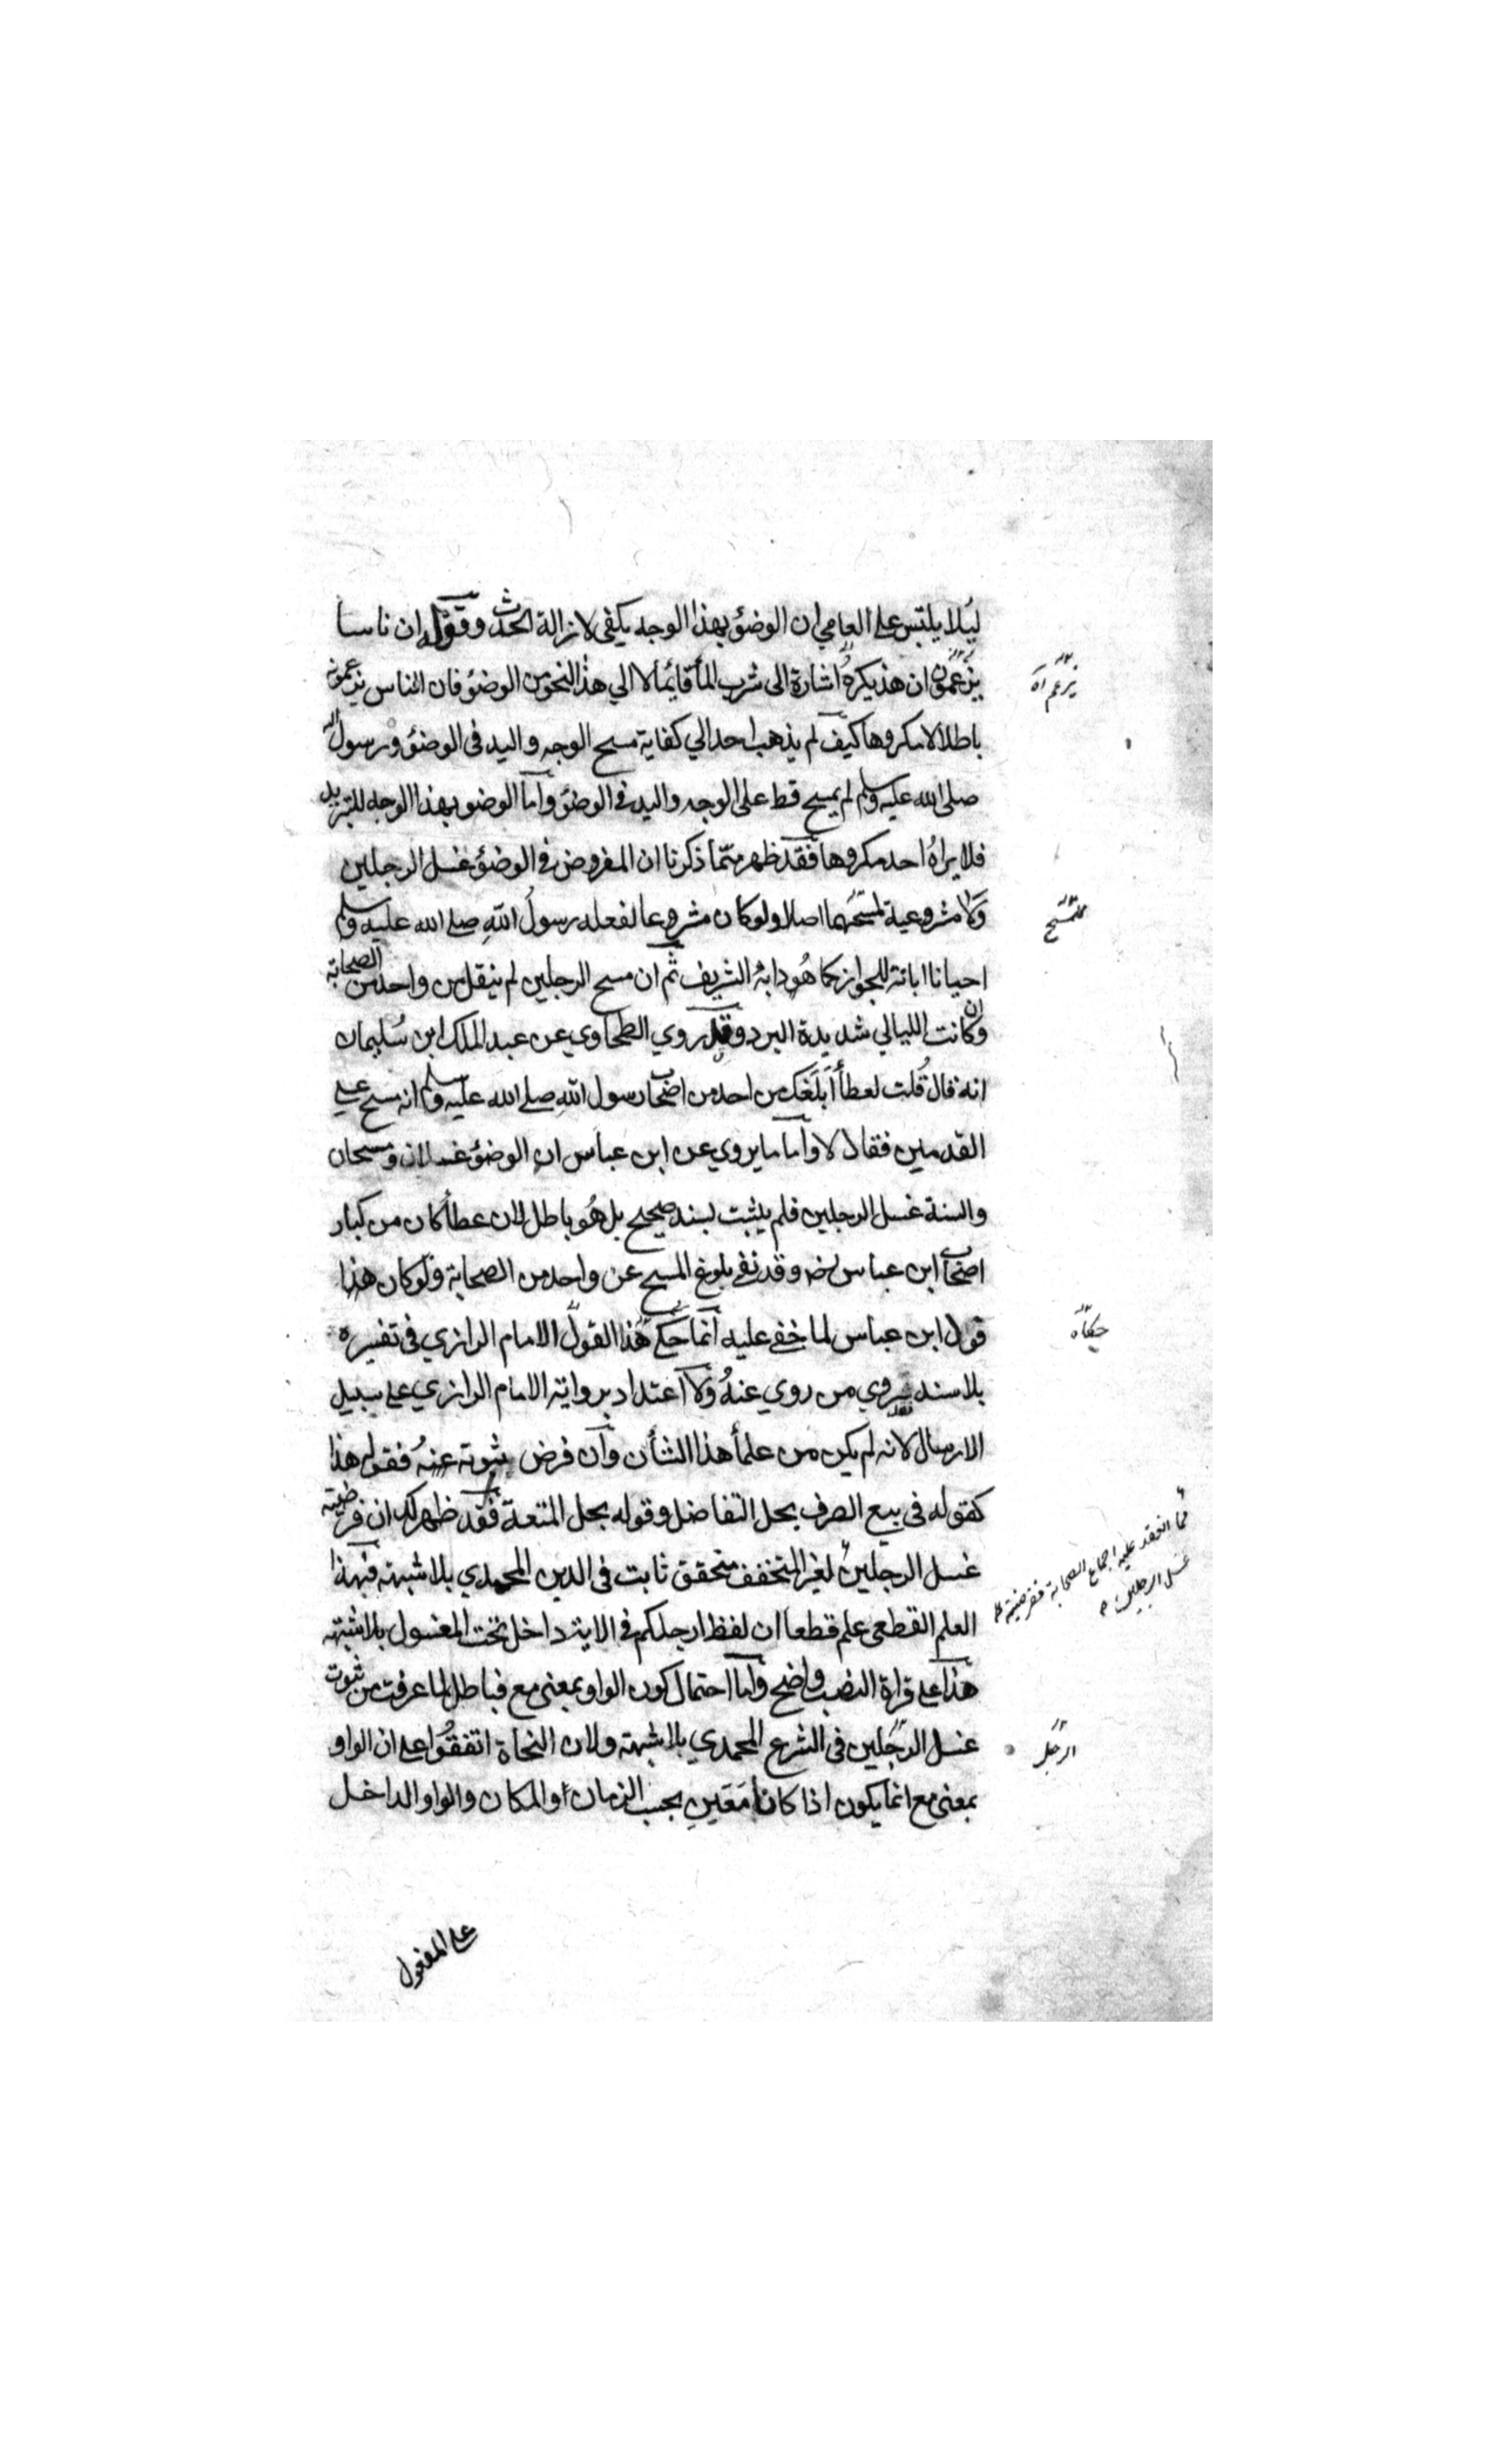 ليلا يلتبس على العامي ان الوضؤ بهذا الوجه يكفى لازالة الحدث وقوله ان ناسا
يزعمون ان هذ يكره اشارة الى شرب المأ قائما لا الي هذا النحو من الوضؤ فان الناس يزعمونه
باطلا لا مكروها كيف لم يذهب احد الي كفاية مسح الوجه واليد فى الوضؤ ورسول الله
صلى الله عليه وسلم لم يمسح قط على الوجه واليد فى الوضؤ واما الوضو بهذا الوجه للتبريد
فلا يراه احد مكروها فقد ظهر مما ذكرنا ان المفروض فى الوضؤ غسل الرجلين
ولا مشروعية لمسحهما اصلا ولو كان مشروعا لفعله رسول الله صلى الله عليه وسلم
احيانا ابانة للجواز كما هو دابه الشريف ثم ان مسح الرجلين لم ينقل من واحد من الصحابة
وان كانت الليالي شديدة البرد وقد روي الطحاوي عن عبد الملك ابن سليمان
انه قال قلت لعطأ أبلغك من احد من اصحاب رسول الله صلى الله عليه وسلم انه مسح على
القدمين فقال لا واما ما يروي عن ابن عباس ان الوضؤ غسلان ومسحان
والسنة غسل الرجلين فلم يثبت بسند صحيح بل هو باطل لان عطأ كان من كبار
اصحاب ابن عباس رضه وقد نفى بلوغ المسح عن واحد من الصحابة ولو كان هذا
قول ابن عباس لما خفى عليه انما حكى هذا القول الامام الرازي فى تفسيره
بلا سند يروي من روي عنه ولا اعتداد برواية الامام الرازي على سبيل
الارسال لانه لم يكن من علمأ هذا الشأن وان فرض ثبوته عنه فقوله هذا
كقوله فى بيع الصرف بحل التفاضل وقوله بحل المتعة فقد ظهر لك ان فرضية
غسل الرجلين لغير المتخفف متحقق ثابت فى الدين المحمدي بلا شبهة فبهذا
العلم القطعى علم قطعا ان لفظ ارجلكم فى الاية داخل تحت المغسول بلا شبهة
هذا على قراة النصب واضح واما احتمال كون الواو بمعنى مع فباطل لما عرفت من ثبوت
غسل الرجلين فى الشرع المحمدي بلا شبهة ولان النحاة اتفقوا على ان الواو
بمعنى مع انما يكون اذا كانا معين بحسب الزمان او المكان والواو الداخل
على المفعول
مما انعقد عليه اجماع الصحابة ففرضية
غسل الرجلين
الرجل